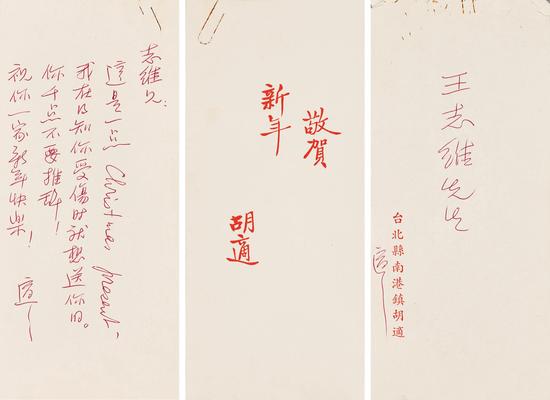 志維兄:
這是一点 Christmas present,
我在得知你受傷时就想送你的。
你千萬不要推辞!
祝你一家新年快樂!
適
敬賀
新年
胡適
王志維先生
台北縣南港鎮胡適
適